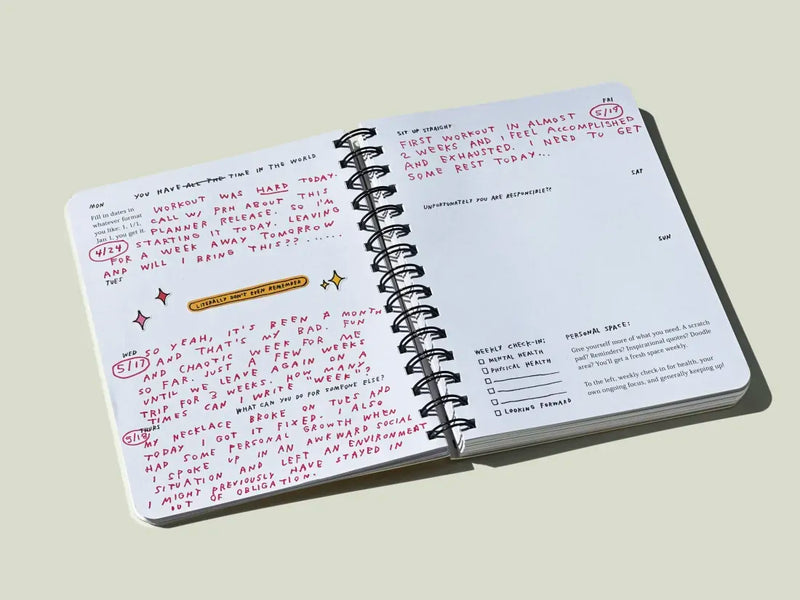 MON
YOU HAVE ALL THE TIME IN THE WORLD
Fill in dates in
whatever format
you like: 1, 1/1,
Jan 1, you get it.
4/24
WORKOUT WAS HARD TODAY.
CALL W/ PRH ABOUT THIS
PLANNER RELEASE. SO I'M
STARTING IT TODAY. LEAVING
FOR A WEEK AWAY TOMORROW
AND WILL I BRING THIS?? ......
TUES
LITERALLY DON'T EVEN REMEMBER
WED
5/17
SO YEAH, IT'S BEEN A MONTH
AND THAT'S MY BAD. FUN
AND CHAOTIC WEEK FOR ME
SO FAR. JUST A FEW WEEKS
UNTIL WE LEAVE AGAIN ON A
TRIP FOR 3 WEEKS. HOW MANY
TIMES CAN I WRITE "WEEK"?
WHAT CAN YOU DO FOR SOMEONE ELSE?
THURS
5/18
MY NECKLACE BROKE ON TUES AND
TODAY I GOT IT FIXED. I ALSO
HAD SOME PERSONAL GROWTH WHEN
I SPOKE UP IN AN AWKWARD SOCIAL
SITUATION AND LEFT AN ENVIRONMENT
I MIGHT PREVIOUSLY HAVE STAYED IN
OUT OF OBLIGATION.
SIT UP STRAIGHT
FRI
5/19
FIRST WORKOUT IN ALMOST
2 WEEKS AND I FEEL ACCOMPLISHED
AND EXHAUSTED. I NEED TO GET
SOME REST TODAY...
SAT
UNFORTUNATELY YOU ARE RESPONSIBLE??
SUN
WEEKLY CHECK-IN:
MENTAL HEALTH
PHYSICAL HEALTH
LOOKING FORWARD
PERSONAL SPACE:
Give yourself more of what you need. A scratch
pad? Reminders? Inspirational quotes? Doodle
area? You'll get a fresh space weekly.
To the left, weekly check-in for health, your
own ongoing focus, and generally keeping up!